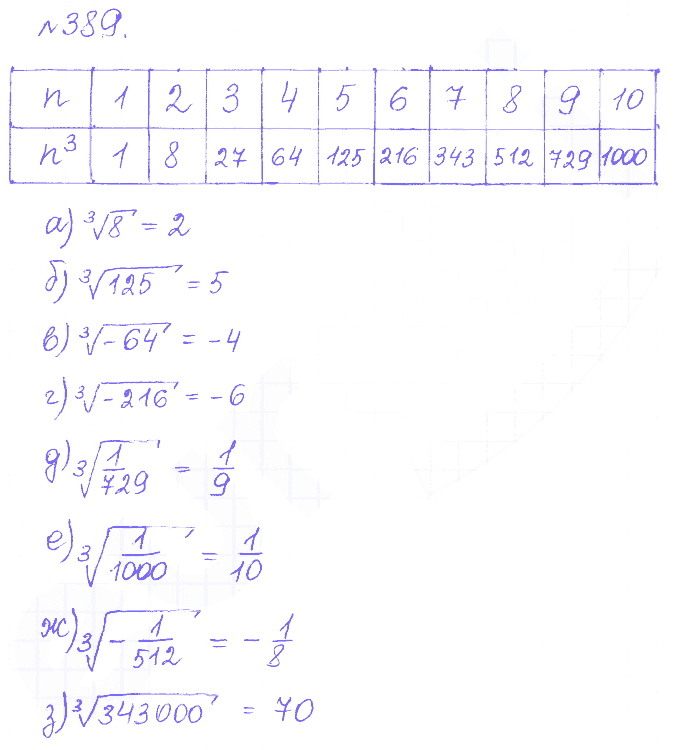 №389.
n 1 2 3 4 5 6 7 8 9 10
n³ 1 8 27 64 125 216 343 512 729 1000
а) ³√8 = 2
б) ³√125 = 5
в) ³√-64 = -4
г) ³√-216 = -6
д) ³√1/729 = 1/9
е) ³√1/1000 = 1/10
ж) ³√-1/512 = -1/8
з) ³√343000 = 70